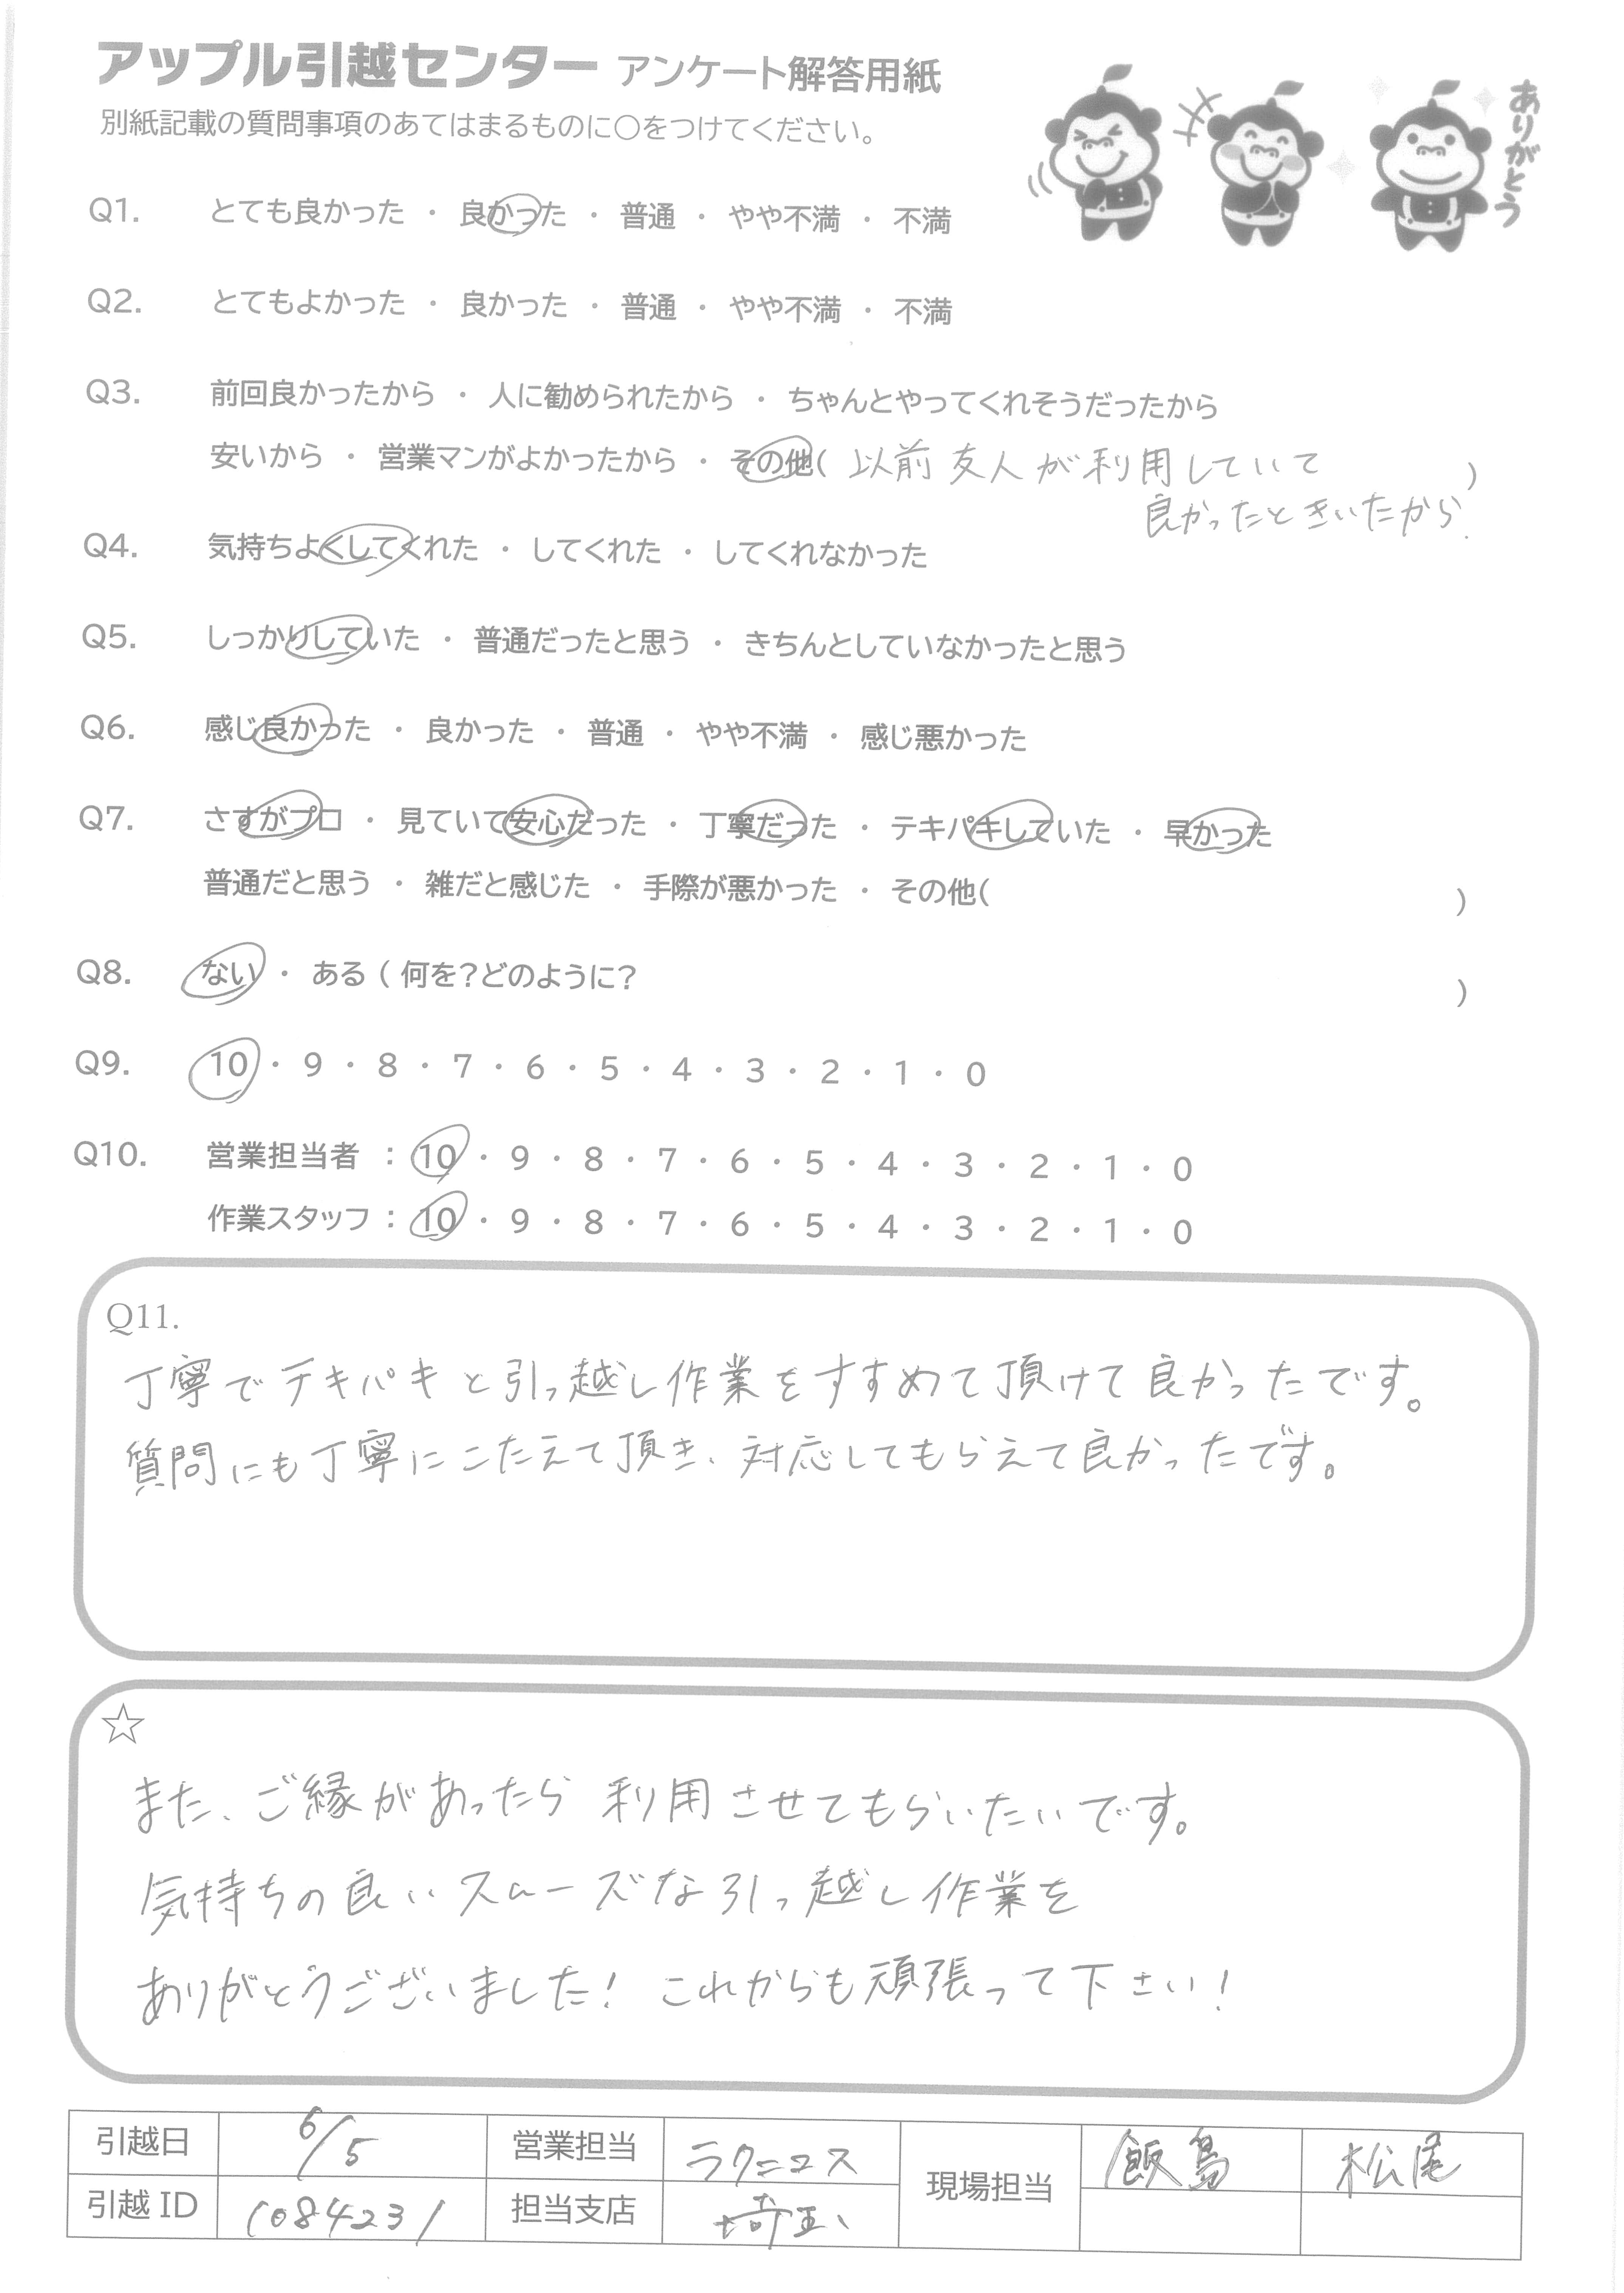 アップル引越センター アンケート解答用紙
別紙記載の質問事項のあてはまるものに○をつけてください。
ありがとう
Q1. とても良かった ・ 良かった ・ 普通 ・ やや不満 ・ 不満
Q2. とてもよかった ・ 良かった ・ 普通 ・ やや不満 ・ 不満
Q3. 前回良かったから ・ 人に勧められたから ・ ちゃんとやってくれそうだったから
安いから ・ 営業マンがよかったから ・ その他( 以前 友人が利用していて )
良かったときいたから.
Q4. 気持ちよくしてくれた ・ してくれた ・ してくれなかった
Q5. しっかりしていた ・ 普通だったと思う ・ きちんとしていなかったと思う
Q6. 感じ良かった ・ 良かった ・ 普通 ・ やや不満 ・ 感じ悪かった
Q7. さすがプロ ・ 見ていて安心だった ・ 丁寧だった ・ テキパキしていた ・ 早かった
普通だと思う ・ 雑だと感じた ・ 手際が悪かった ・ その他( )
Q8. ない ・ ある ( 何を?どのように? )
Q9. 10 ・ 9 ・ 8 ・ 7 ・ 6 ・ 5 ・ 4 ・ 3 ・ 2 ・ 1 ・ 0
Q10. 営業担当者 : 10 ・ 9 ・ 8 ・ 7 ・ 6 ・ 5 ・ 4 ・ 3 ・ 2 ・ 1 ・ 0
作業スタッフ : 10 ・ 9 ・ 8 ・ 7 ・ 6 ・ 5 ・ 4 ・ 3 ・ 2 ・ 1 ・ 0
Q11.
丁寧でテキパキと引っ越し作業をすすめて頂けて良かったです。
質問にも丁寧にこたえて頂き、対応してもらえて良かったです。
☆
また、ご縁があったら 利用させてもらいたいです。
気持ちの良いスムーズな引っ越し作業を
ありがとうございました! これからも頑張って下さい!
引越日 6/5 営業担当 ラクニコス 現場担当 飯島 松尾
引越 ID 1084231 担当支店 埼玉